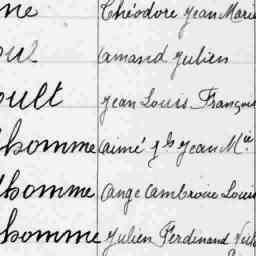 ne Théodore Jean Marie
ou Amand Julien
oult Jean Louis François
lhomme Aimé fls Jean Mie
lhomme Ange Cambronne Louis
lhomme Julien Ferdinand